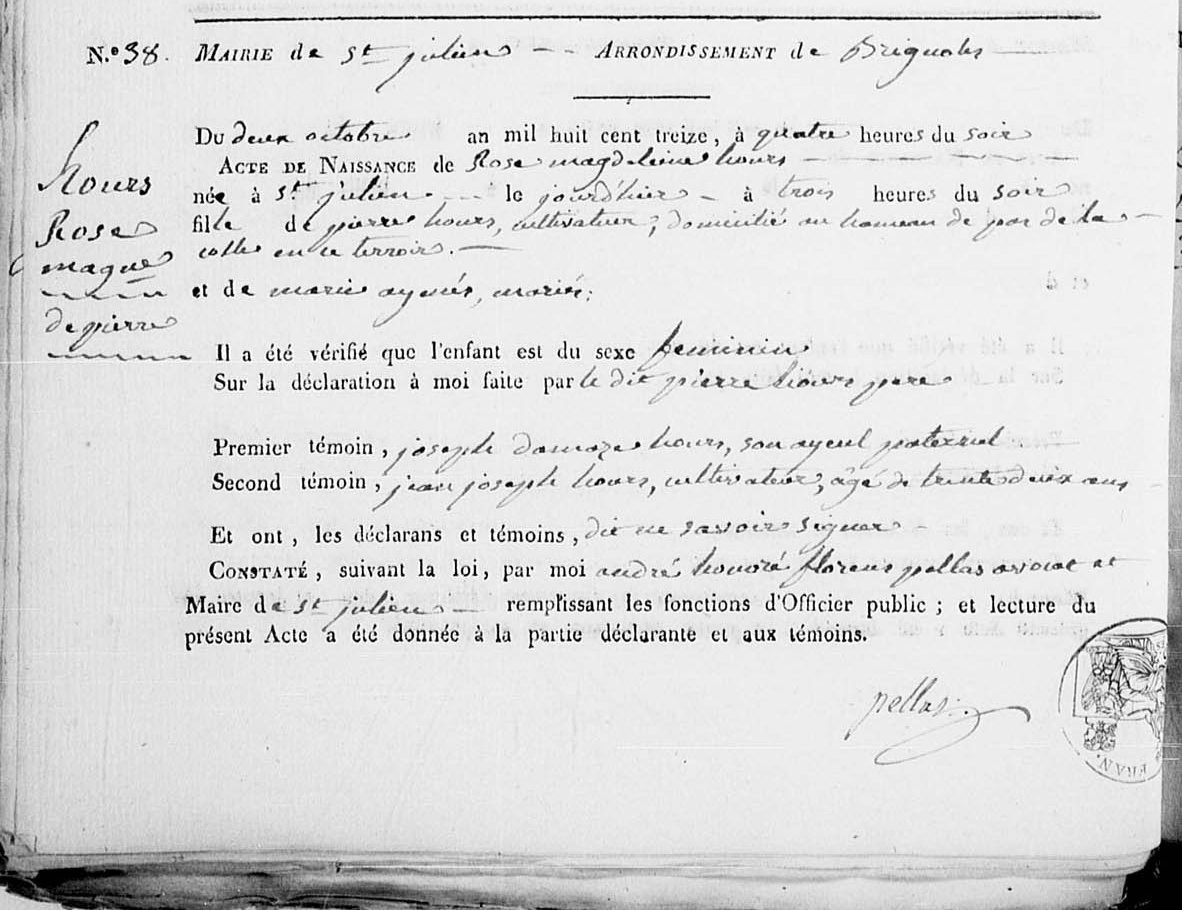 N.º 38. MAIRIE de St julien — ARRONDISSEMENT de Brignoles
Du deux octobre an mil huit cent treize, à quatre heures du soir
ACTE DE NAISSANCE de Rose magdeleine hours
née à St julien — le jourd'hier — à trois heures du soir
fille de pierre hours, cultivateur, domicilié au hameau de par de la
colle en ce terroir. —
et de marie aymés, mariés;
Il a été vérifié que l'enfant est du sexe feminin
Sur la déclaration à moi faite par le dit pierre hours pere
Premier témoin, joseph hours, son ayeul paternel
Second témoin, jean joseph hours, cultivateur, âgé de trente deux ans
Et ont, les déclarans et témoins, dit ne savoir signer
CONSTATÉ, suivant la loi, par moi andré honoré florens pellas avocat et
Maire de St julien — remplissant les fonctions d'Officier public ; et lecture du
présent Acte a été donnée à la partie déclarante et aux témoins.
pellas
hours
Rose
magne
de pierre
FRAN.